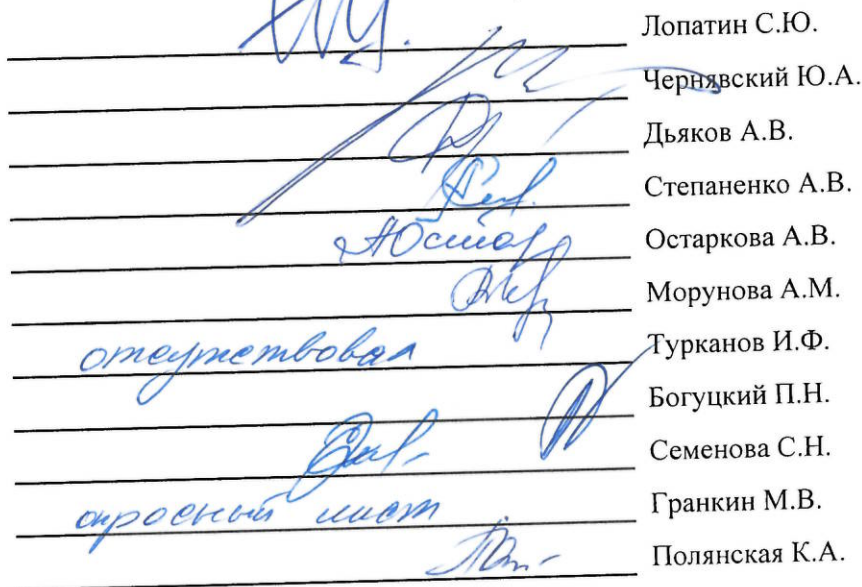 Лопатин С.Ю.
Чернявский Ю.А.
Дьяков А.В.
Степаненко А.В.
Остаркова А.В.
Морунова А.М.
отсутствовал Турканов И.Ф.
Богуцкий П.Н.
Семенова С.Н.
опросный лист Гранкин М.В.
Полянская К.А.